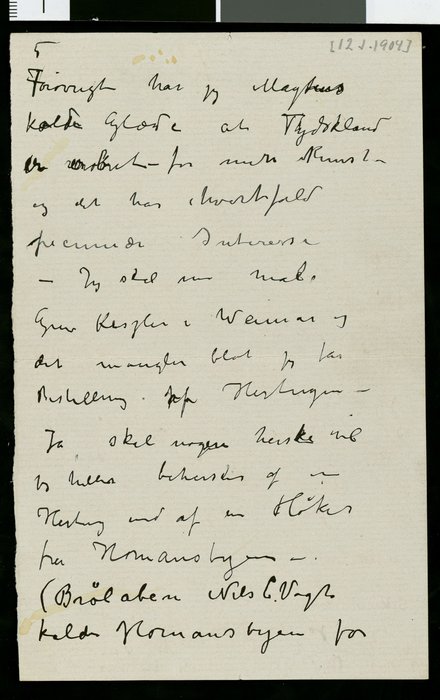 [12.1.1904]
5
Forøvrigt har jeg Magtens
kolde Glæde at Thydskland
er erobret for min Kunst –
og det har ihvertfald
pecuniær Interesse
– Jeg skal nu male
Grev Kessler i Weimar og
det mangler blot jeg får
Bestilling på Hertugen –
Ja skal nogen herske vil
jeg heller beherskes af en
Hertug end af en Høker
fra Homansbyen –.
(Brölaben Nils C. Vogt
kalder Homansbyen for